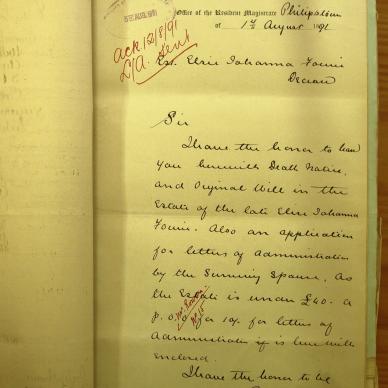 5 AUG 1891
Office of the Resident Magistrate Philipolis
of 1st August 1891
Ack 12/8/91
L/A. Sent
Est. Elsie Johanna Fourie
Deceased
Sir
I have the honor to hand
you herewith Death Notice,
and Original Will in the
Estate of the late Elsie Johanna
Fourie. Also an application
for letters of administration
by the Surviving Spouse, As
the Estate is under £40. a
p. o. o for 10/- for letters of
Administration is herewith
enclosed.
I have the honor to be